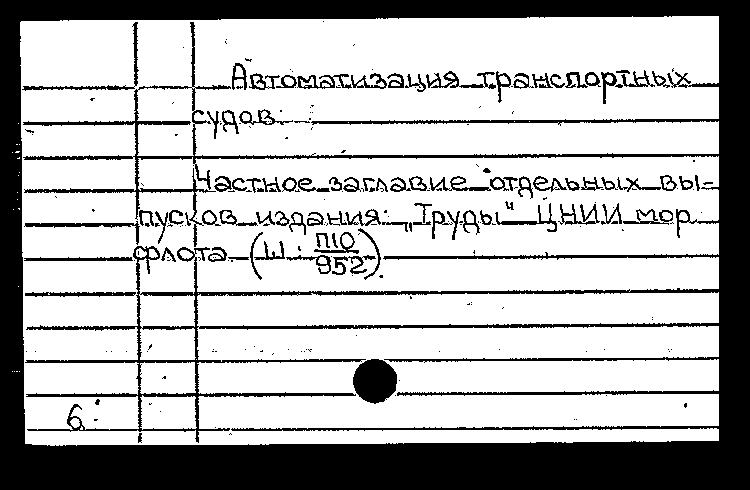 Автоматизация транспортных
судов.
Частное заглавие отдельных вы-
пусков издания: „Труды" ЦНИИ мор.
флота. (Ш. П10/952).
6.